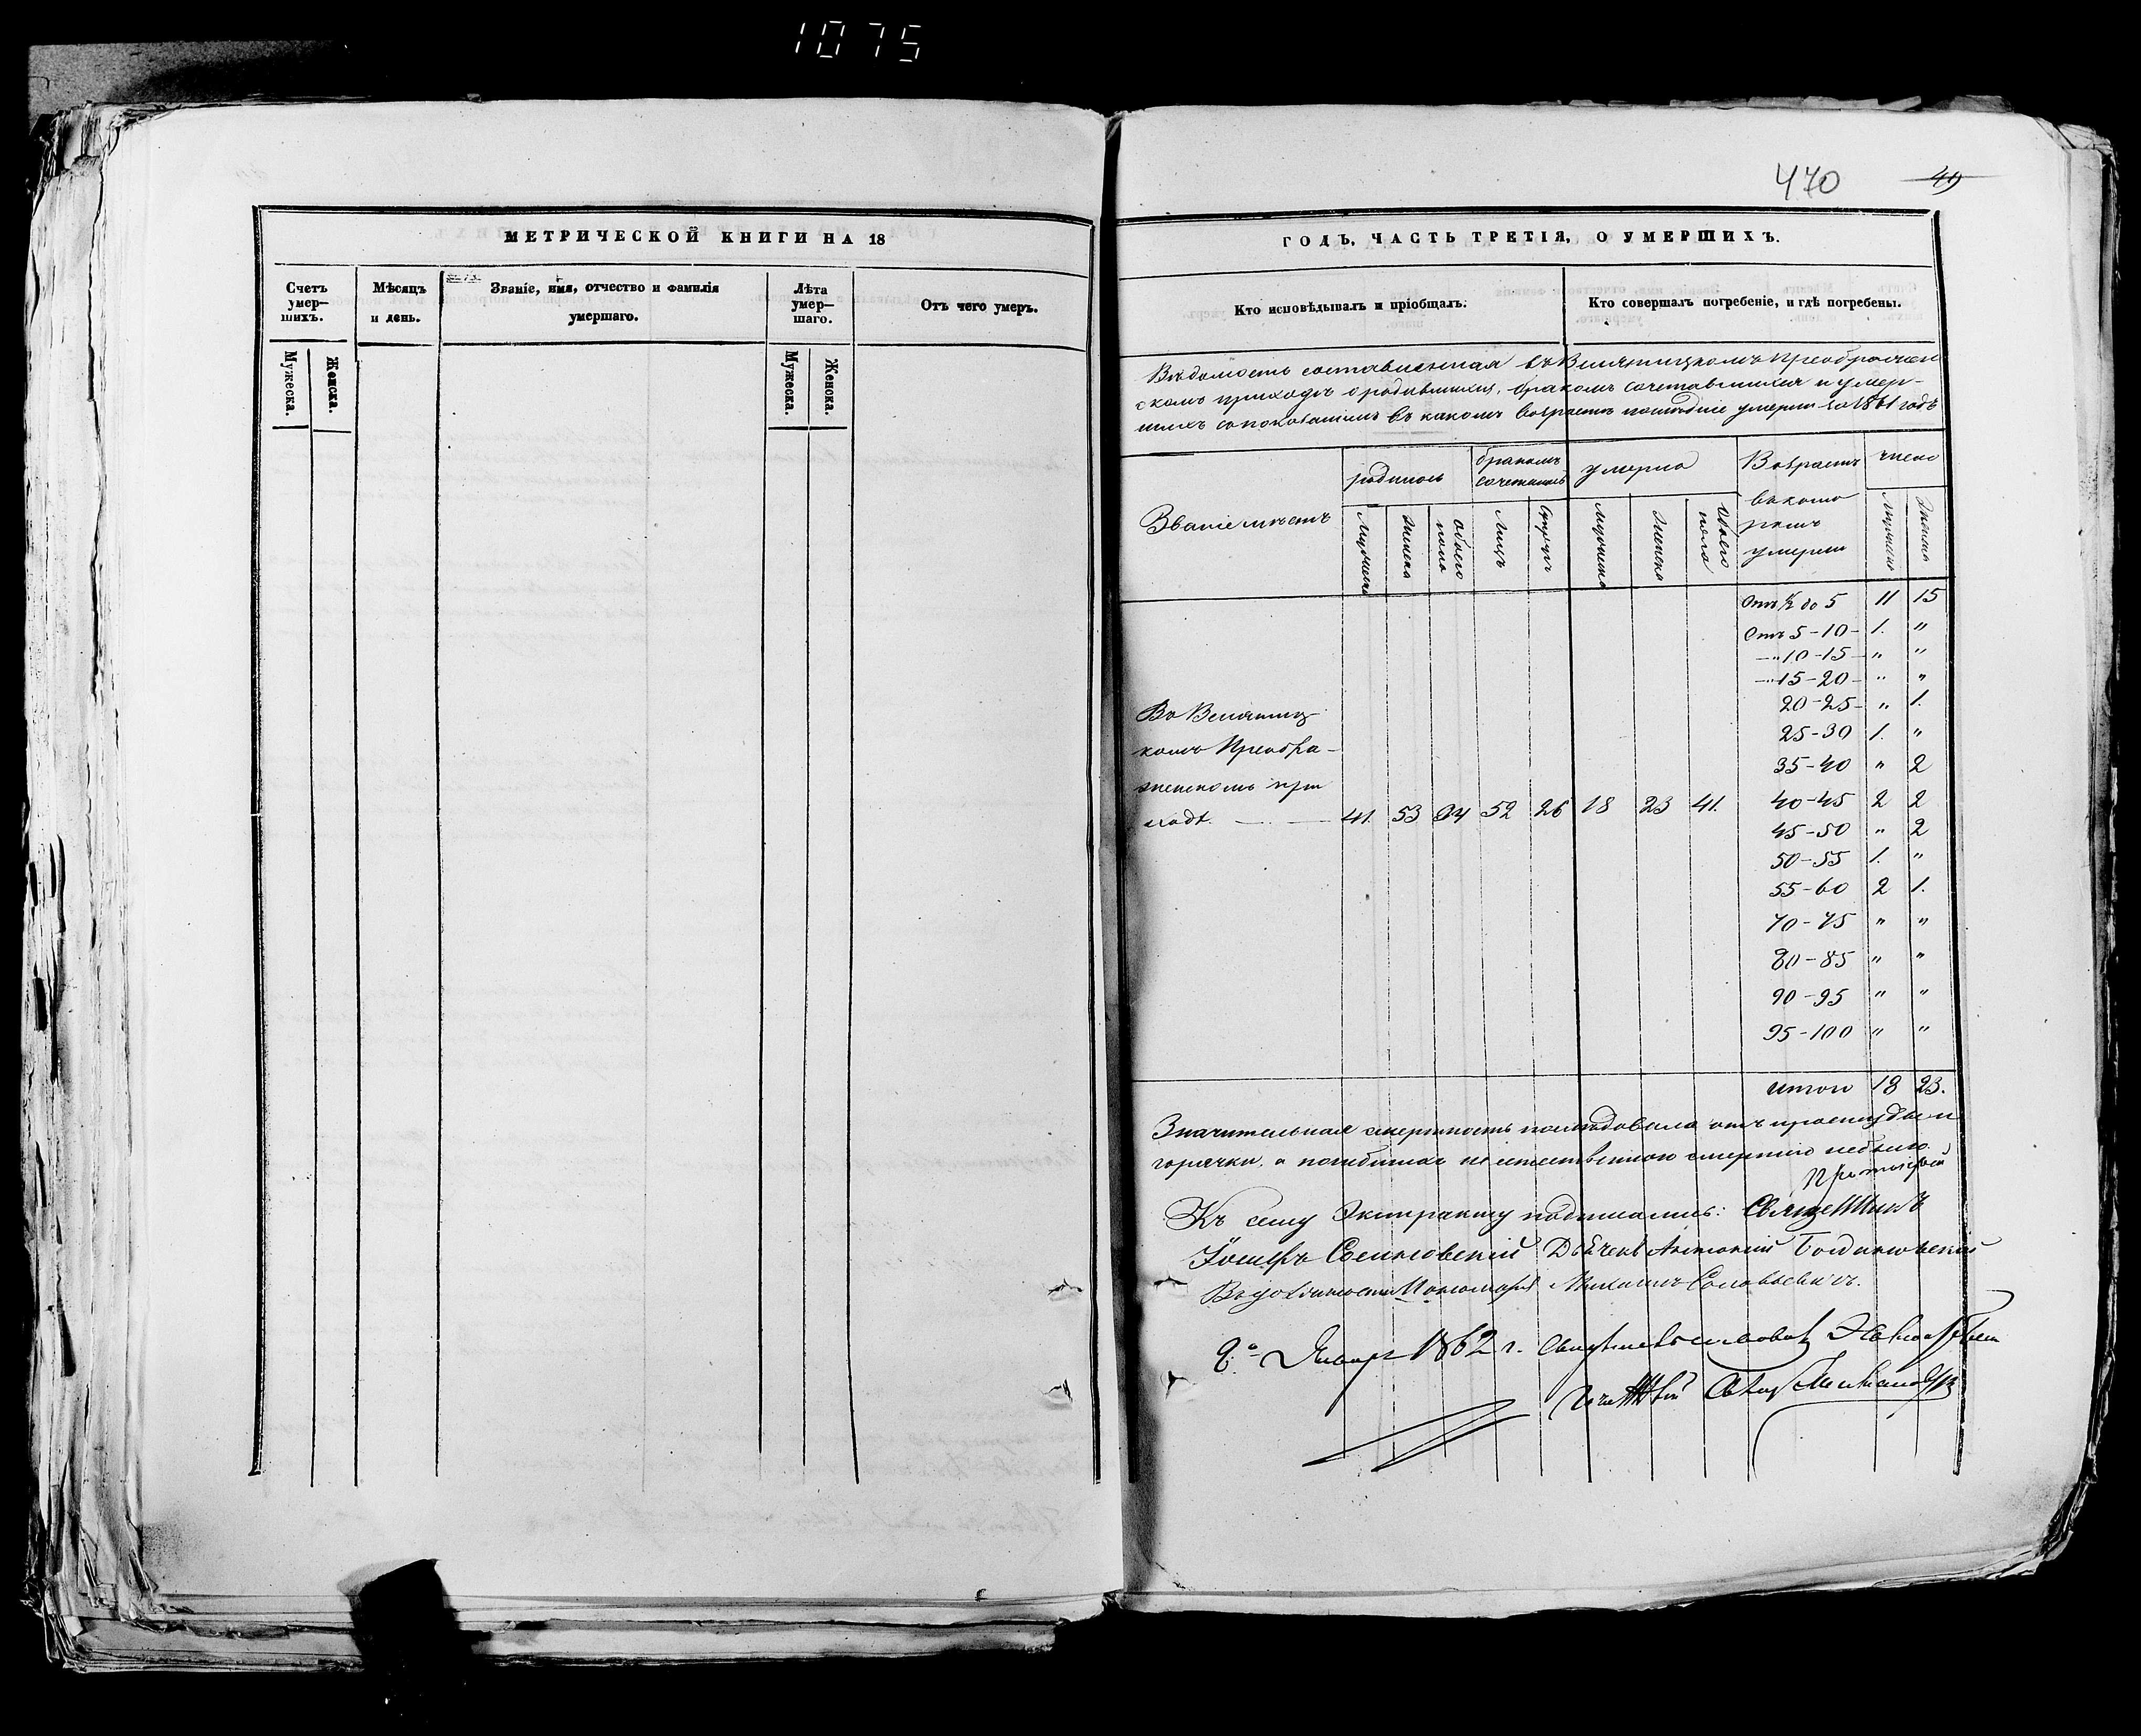 1075
МЕТРИЧЕСКОЙ КНИГИ НА 18
Счетъ умер–шихъ.
Мѣсяцъ и день.
Званіе, имя, отчество и фамилія умершаго.
Лѣта умер–шаго.
Отъ чего умеръ.
Мужеска.
Женска.
Мужеска.
Женска.
470 49
ГОДЪ, ЧАСТЬ ТРЕТІЯ, О УМЕРШИХЪ.
Кто исповѣдывалъ и пріобщалъ.
Кто совершалъ погребеніе, и гдѣ погребены.
Вѣдомость составленная въ Велятицкомъ Преображен
скомъ приходѣ о родившихся, бракомъ сочетавшихся и умер–
шихъ съ показаніемъ въ какомъ возрастѣ послѣдніе умерли за 1861 годъ
Званіе мѣстъ
родилось
бракомъ сочеталось
умерло
Возрастъ въ кото ромъ умерли
число
Мужеска
Женска
обоего пола
Лицъ
Супруг
Мужеска
Женска
Обоего пола
Мужеска
Женска
Отъ ½ до 5 11 15
Отъ 5-10- 1. "
—"10-15- " "
—"15-20- " "
20-25- " 1.
25-30 1. "
35-40 " 2
40-45 2 2
45-50 " 2
50-55 1. "
55-60 2 1.
70-75 " "
80-85 " "
90-95 " "
95-100 " "
Во Велятиц–
комъ Преобра–
женскомъ при
ходѣ. — — 41. 53 94 52 26 18 23 41.
итого 18 23.
Значительная смертность послѣдовала отъ простуды и
горячки, а погибшихъ не естественною смертію небыло.
Къ сему Экстракту подписались: Священникъ
Іосифъ Дьячекъ Антоній
Въ должности Пономаря Михаилъ Соловьевичъ.
Январ 1862 г.